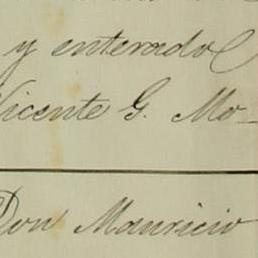 y enterado
Vicente G. Mo-
Don Mauricio